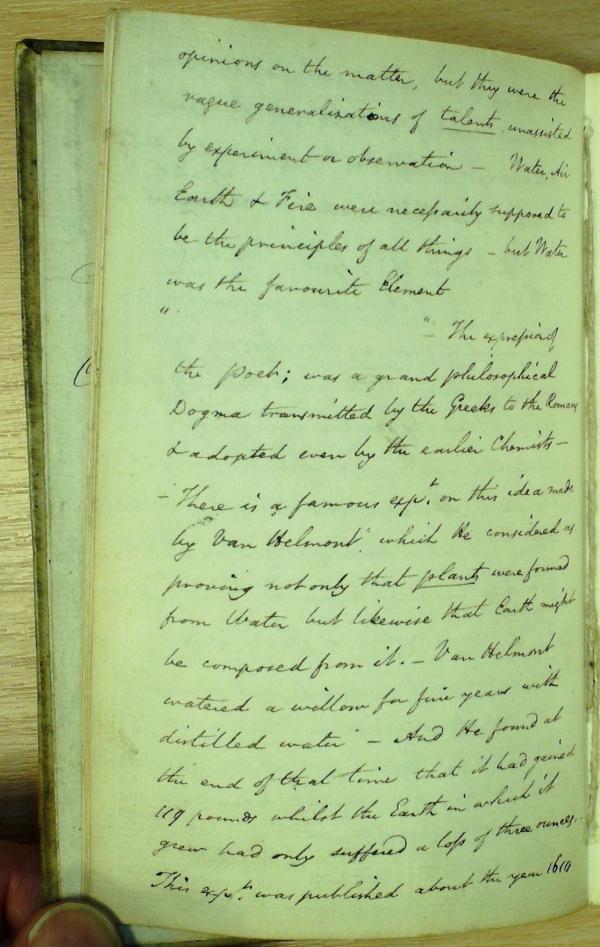 opinions on the matter, but they were the
vague generalizations of talents, unassisted
by experiment or observation – Water, Air
Earth & Fire were necessarily supposed to
be the principles of all things – but Water
was the favourite Element
"
" – The expression of
the poet; was a grand philosophical
Dogma transmitted by the Greeks to the Romans
& adopted even by the earlier Chemists –
– There is a famous expt. on this idea made
by "Van Helmont" which He considered as
proving not only that plants were formed
from Water but likewise that Earth might
be composed from it. – Van Helmont
watered a willow for five years with
distilled water – And He found at
the end of that time that it had gained
119 pounds whilst the Earth in which it
grew had only suffered a loss of three ounces. –
This expt. was published about the year 1610